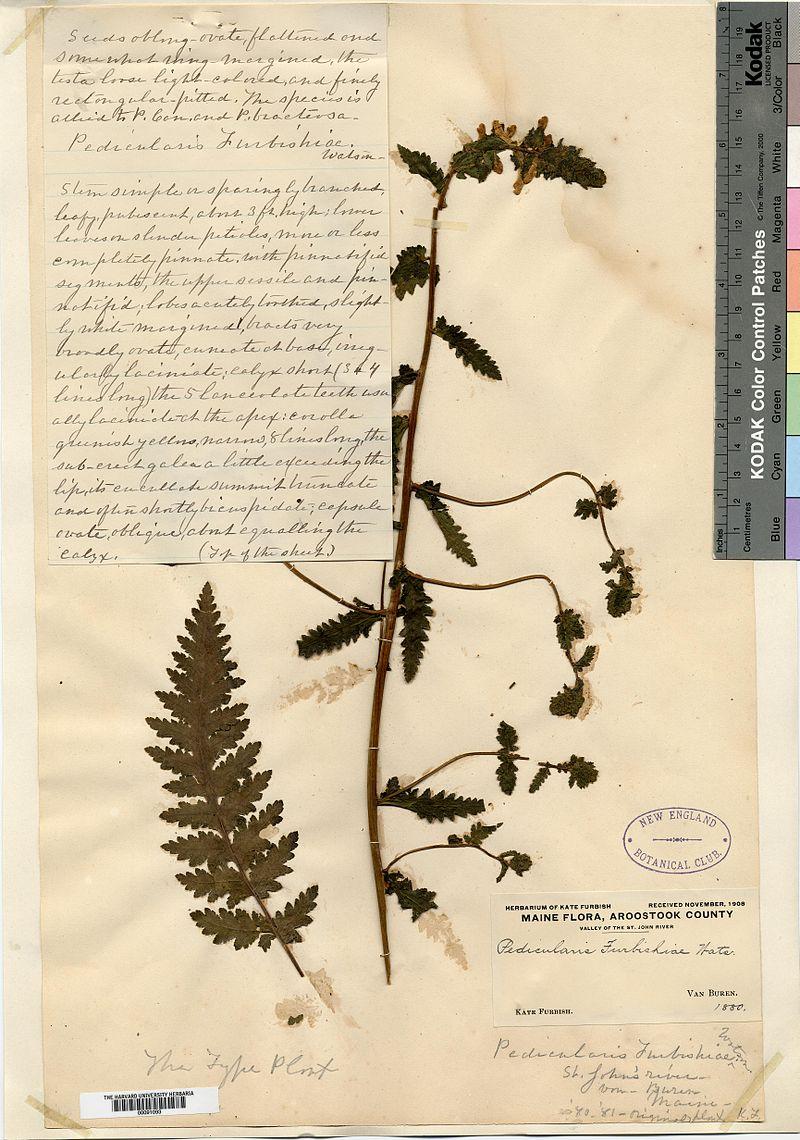 Seeds oblong-ovate, flattened and
somewhat wing-margined, the
testa loose light-colored, and finely
rectangular-pitted. The species is
allied to P. Can. and P. bracteosa-
Pedicularis Furbishiae.
Watson-
Stem simple or sparingly branched,
leafy, pubescent, about 3 ft. high; lower
leaves on slender petioles, more or less
completely pinnate, with pinnatifid
segments, the upper sessile and pin-
natifid; lobes acutely toothed, slight-
ly white margined; bracts very
broadly ovate, cuneate at base, irreg-
ularly laciniate; calyx short (3 & 4
lines long) the 5 lanceolate teeth usu
ally laciniate at the apex: corolla
greenish yellow, narrow, 8 lines long, the
sub-erect galea a little exceeding the
lip, its cucullate summit truncate
and often shortly bicuspidate; capsule
ovate, oblique, about equalling the
calyx. (Top of the sheet.)
Kodak
LICENSED PRODUCT
KODAK Color Control Patches
© The Tiffen Company, 2000
Blue Cyan Green Yellow Red Magenta White 3/Color Black
Inches 1 2 3 4 5 6 7 8
Centimetres 1 2 3 4 5 6 7 8 9 10 11 12 13 14 15 16 17 18 19
NEW ENGLAND
BOTANICAL CLUB.
HERBARIUM OF KATE FURBISH RECEIVED NOVEMBER, 1908
MAINE FLORA, AROOSTOOK COUNTY
VALLEY OF THE ST. JOHN RIVER
Pedicularis Furbishiae Wats.
VAN BUREN.
KATE FURBISH. 1880.
Pedicularis Furbishiae Watson
St. John's river-
van-Buren
Maine-
'80-'81-original plant K.F.
The Type Plant
THE HARVARD UNIVERSITY HERBARIA
00091000